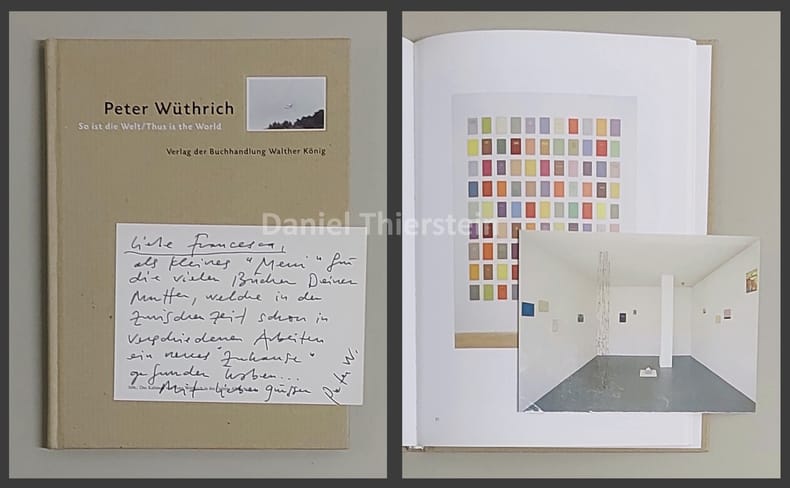 Peter Wüthrich
So ist die Welt/Thus is the World
Verlag der Buchhandlung Walther König
Daniel Thierstein
Liebe Francesca,
als kleines "Merci" für
die vielen Bücher Deiner
Mutter, welche in der
Zwischenzeit schon in
verschiedenen Arbeiten
ein neues "Zuhause"
gefunden haben...
Mit lieben Grüssen
Peter W.